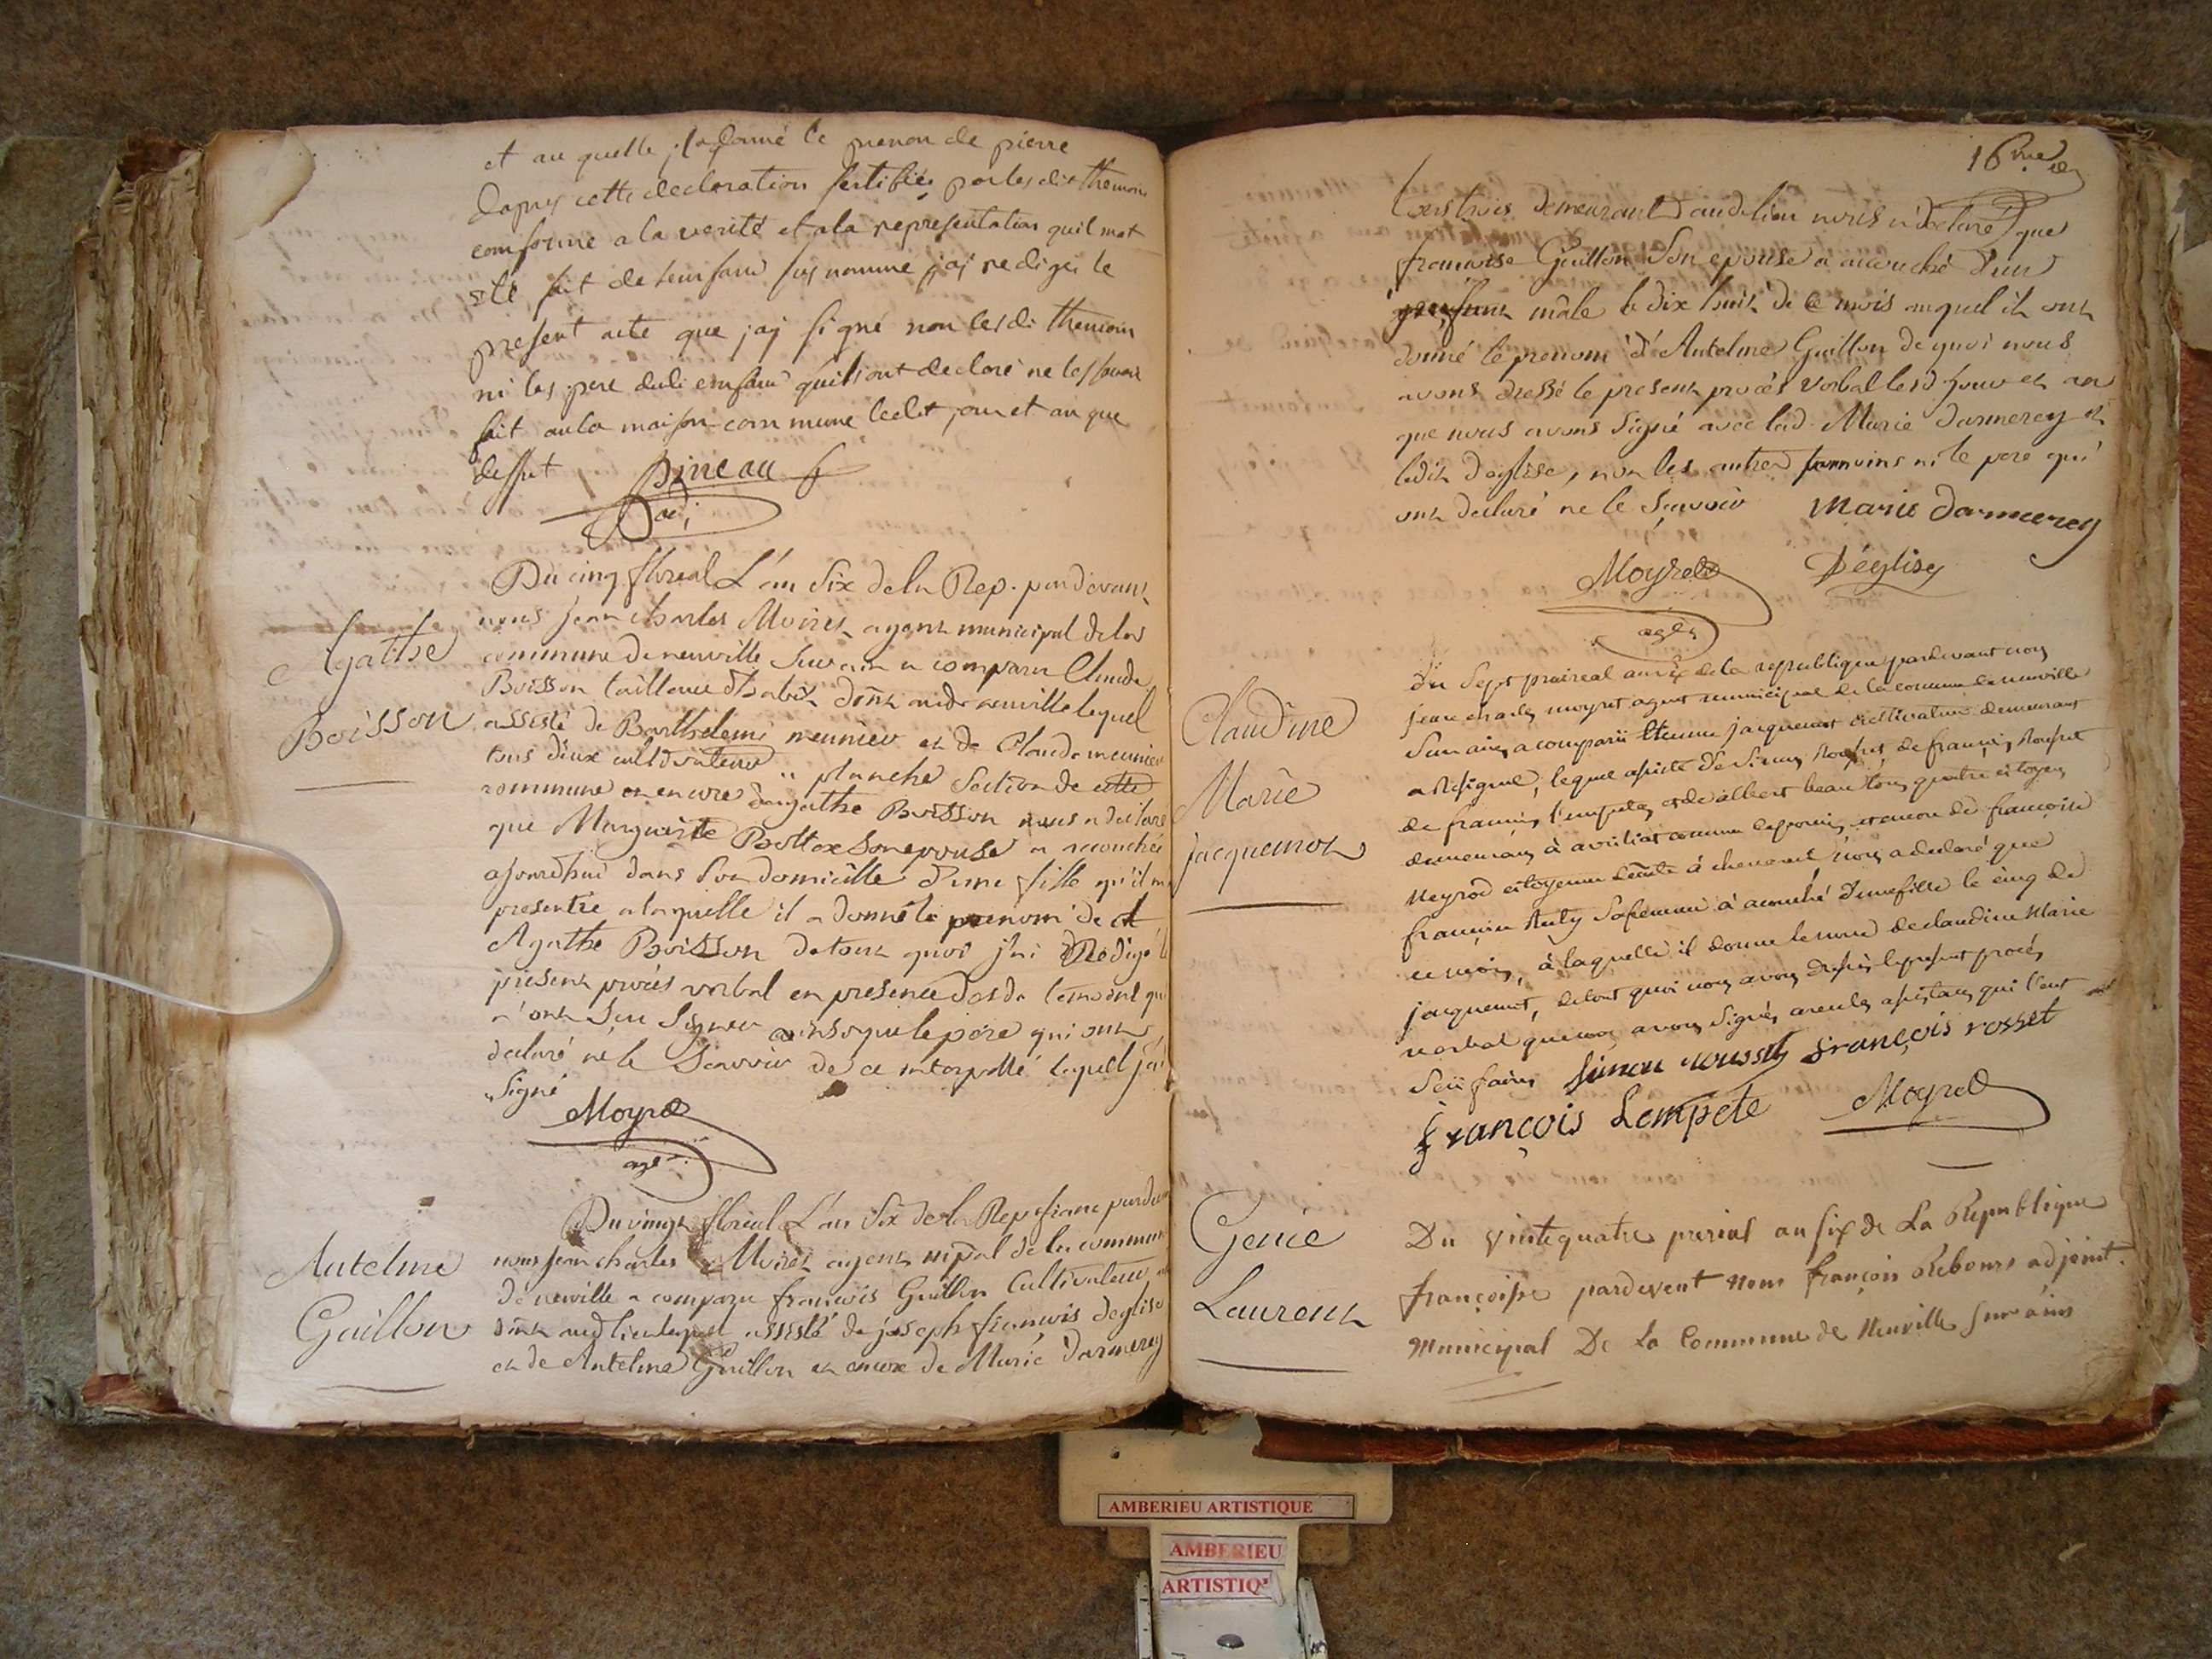 et au quelle il a donné le prenon de pierre
dapres cette declaration sertifiée par les dis themoin
conforme a la verité et a la representation quil mat
eté fait de lenfant sus nommé jaj rediger le
present acte que jaj signé non les di themoin
ni les pere dudi enfant quils ont declaré ne les savoir
fait au la maison commune ledit jour et an que
dessut Pineau
adj
Agathe
Boisson
Du cinq floreal L'an Six de la Rep. pardevant
nous jean charles Moiret agent municipal de la
commune de neuville sur ain a comparu Claude
Boisson tailleur d'habit dont audit neuville lequel
assisté de Barthelemi meunier et de Claude meunier
tous deux cultivateur planche Section de cette
commune et encore d'agathe Boisson nous a declaré
que Marguerite Bottex son epouse a accouchée
ajourdhui dans son domicille d'une fille qu'il m
presentée a laquelle il a donné le prenom de
Agathe Boisson de tout quoi j'ai Rédigé l
present procès verbal en presence des d temoins qu
n'ont seu signer ainsi que le père qui ont
declaré ne le Scavoir de ce interpellé lequel j'ai
Signé Moyret
age
Antelme
Guillon
Du vingt floreal L'an Six de la Rep française pardev
nous jean charles Moiret agent mpal de la commune
de neuville a comparu francois Guillon Cultivateur
dont aud lieu lequel assisté de joseph francois deglise
et de Antelme Guillon et encore de Marie darmerey
16me
tous trois demeurant aud lieu nous a declaré que
francoise Guillon Son epouse a accouché d'un
enfant mâle le dix huit de ce mois auquel il ont
donné le prenom d'Antelme Guillon de quoi nous
avons dressé le present procès verbal lesd jour et an
que nous avons Signé avec lad. Marie darmerey et
ledit deglise, non les autres temoins ni le pere qui
ont declaré ne le Scavoir Marie darmerey
Moyret Déglise
agt
Claudine
Marie
jacquemot
Du Sept prairéal an six de la republique pardevant nous
jean charles moyret agent municipal de la comune de neuville
Sur ain, a comparü Etienne jacquemot cultivateur demeurant
a Resignel, lequel assisté de Simon Rousset, de françois Rousset
de françois l'empete, et de albert beau tous quatre citoyen
demeurant à commune et encore de françoise
Meyrod citoyenne nous a declaré que
francoise Sa femme à accouché d'une fille le cinq de
ce mois, à laquelle il donne le nom de claudine Marie
jacquemot, de tout quoi nous avons dressés le present procés
verbal que nous avons Signés avec les assistans qui l'ont
Seü faire Simon roussy françois rosset
françois Lempete Moyret
Genie
Laurent
Du vintequatre prerial an six de La Republique
françoisse pardevent nous françois Rebours adjoint
municipal De La Commune de Neuville sur ains
AMBERIEU ARTISTIQUE
AMBERIEU
ARTISTIQ